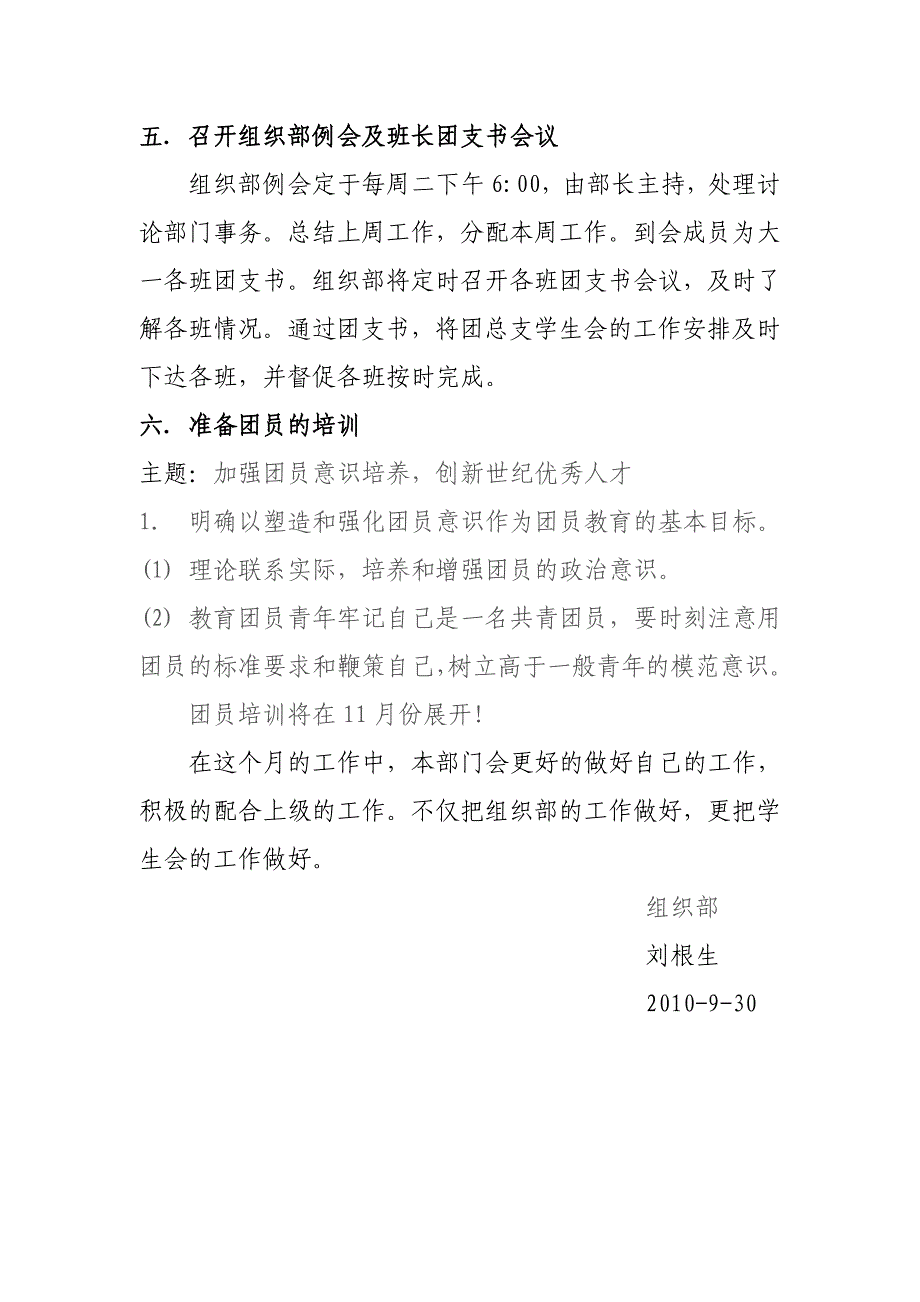 五. 召开组织部例会及班长团支书会议
组织部例会定于每周二下午 6:00，由部长主持，处理讨
论部门事务。总结上周工作，分配本周工作。到会成员为大
一各班团支书。组织部将定时召开各班团支书会议，及时了
解各班情况。通过团支书，将团总支学生会的工作安排及时
下达各班，并督促各班按时完成。
六. 准备团员的培训
主题：加强团员意识培养，创新世纪优秀人才
1. 明确以塑造和强化团员意识作为团员教育的基本目标。
(1) 理论联系实际，培养和增强团员的政治意识。
(2) 教育团员青年牢记自己是一名共青团员，要时刻注意用
团员的标准要求和鞭策自己,树立高于一般青年的模范意识。
团员培训将在 11 月份展开！
在这个月的工作中，本部门会更好的做好自己的工作，
积极的配合上级的工作。不仅把组织部的工作做好，更把学
生会的工作做好。
组织部
刘根生
2010-9-30